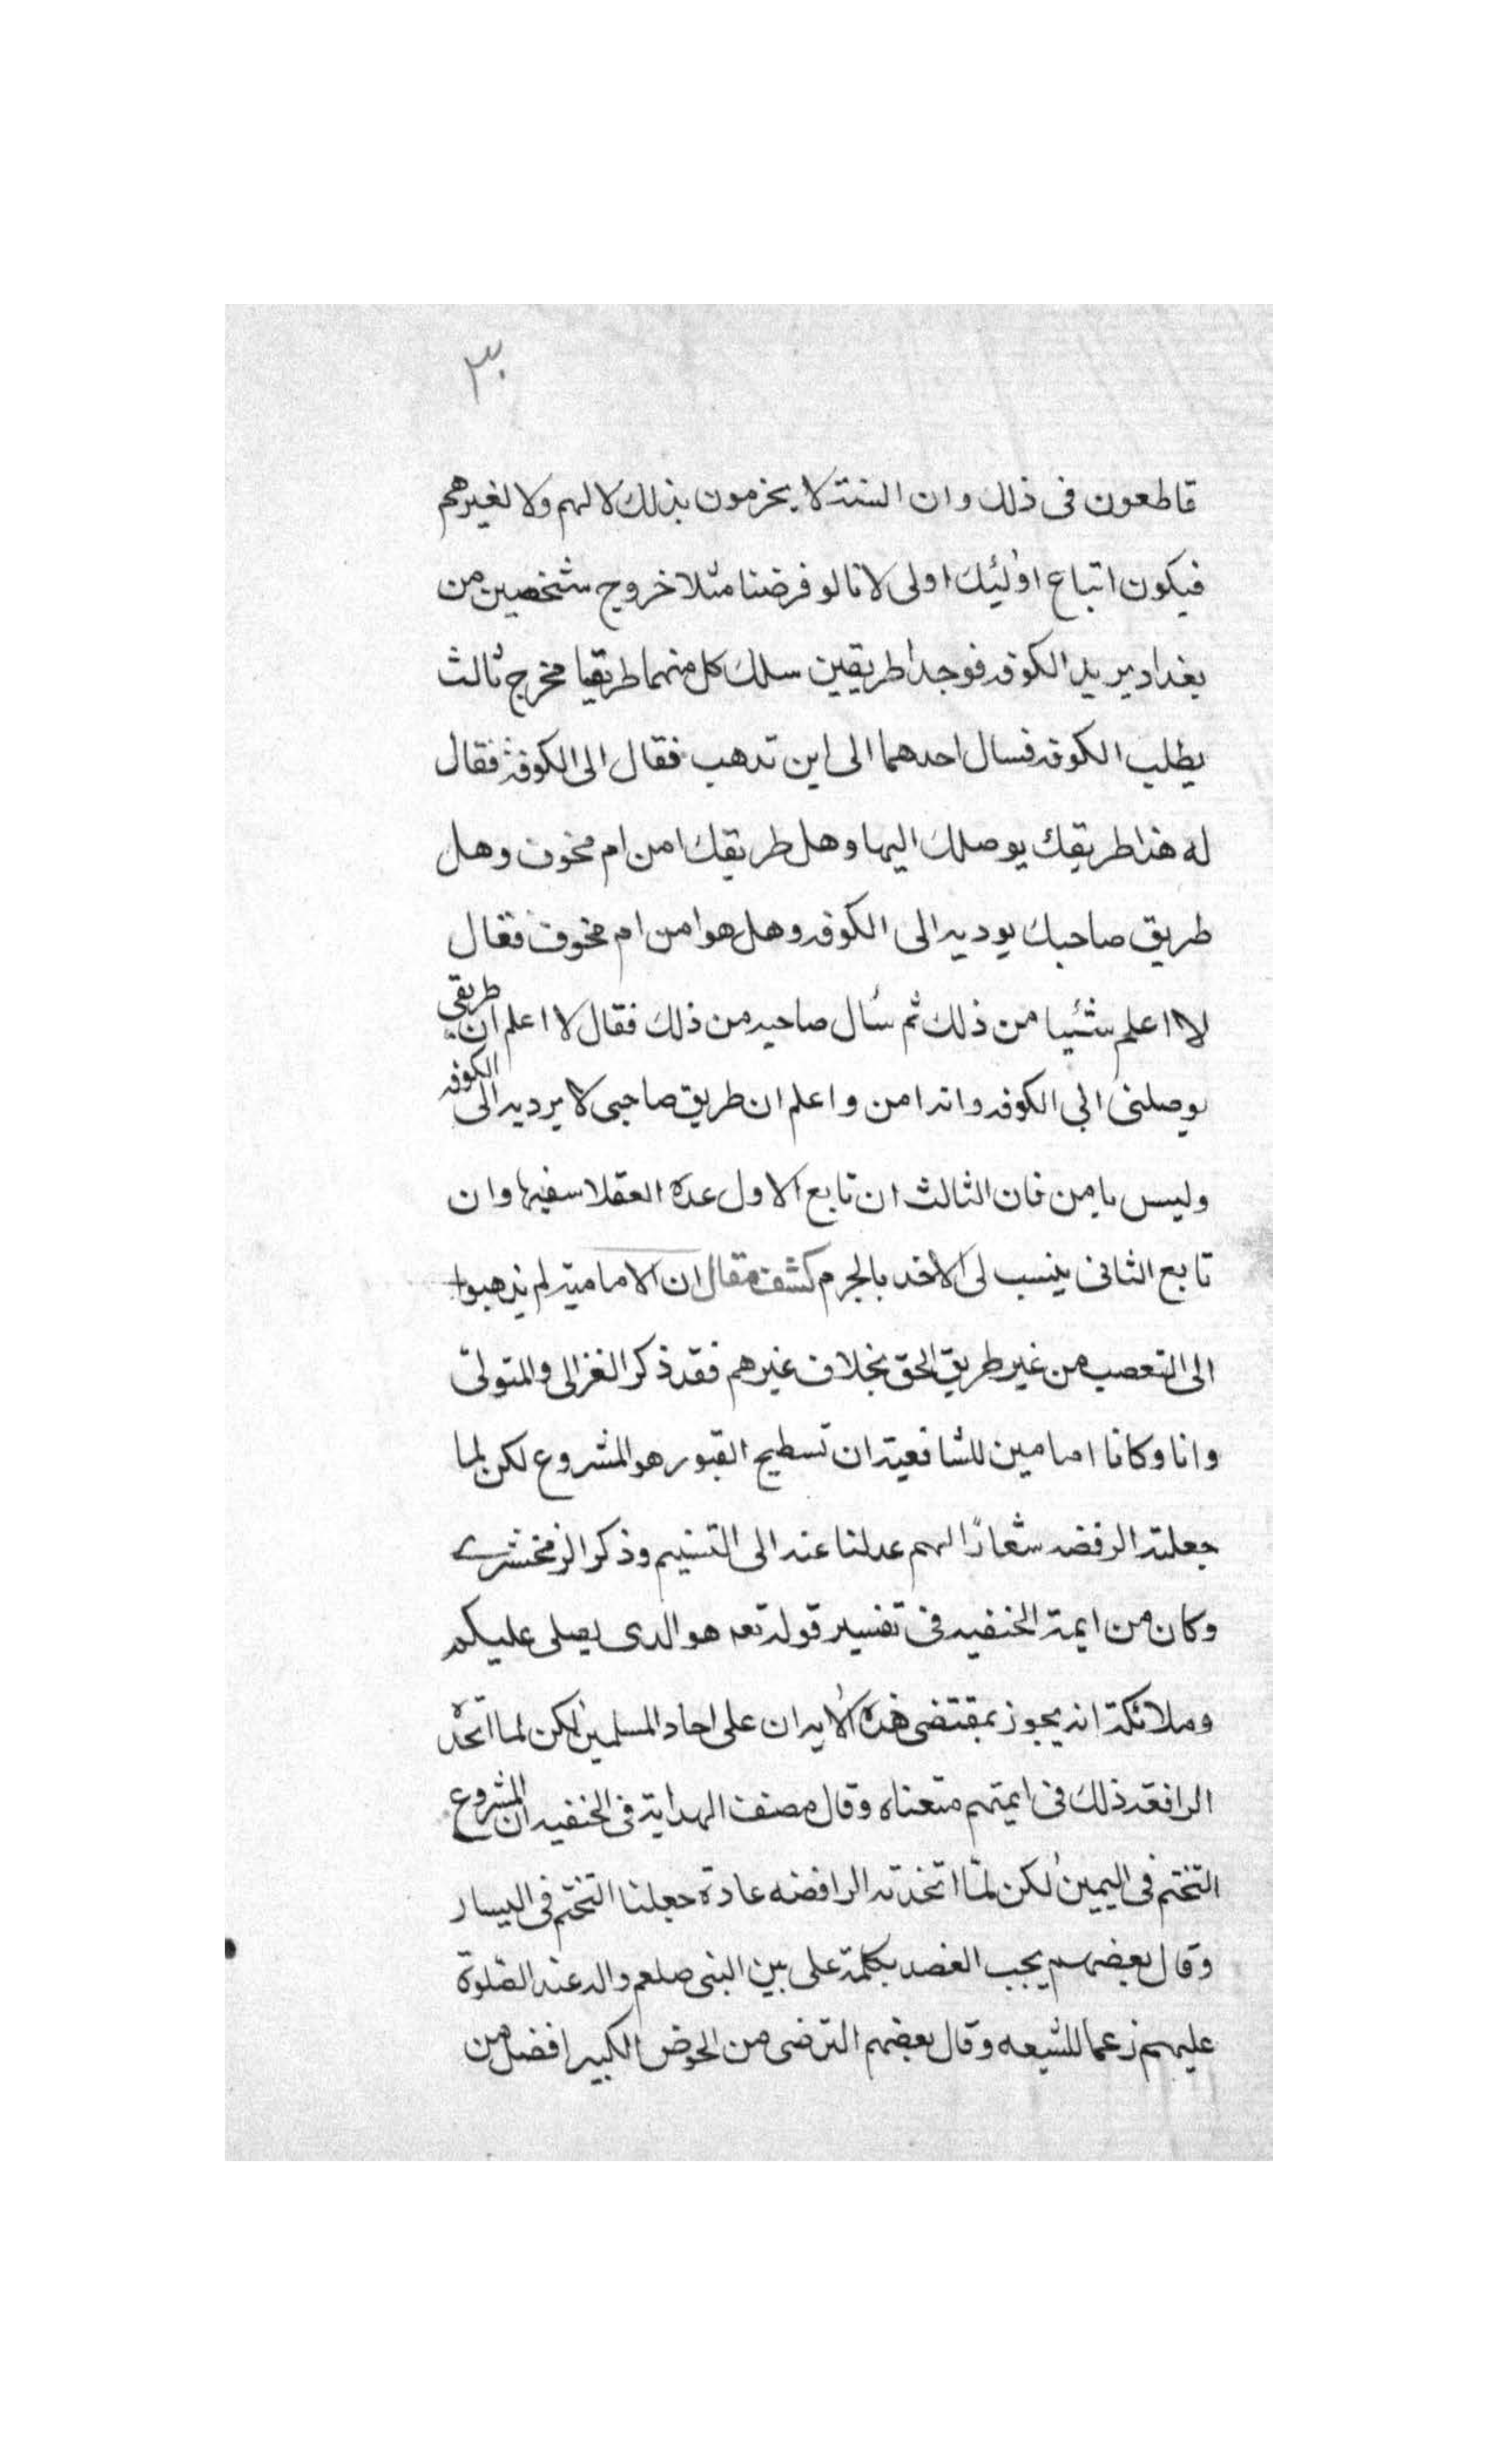 ٣٠
قاطعون فى ذلك وان السنة لا يخرمون بذلك لا لهم ولا لغيرهم
فيكون اتباع اولئيك اولى لانا لو فرضنا مثلا خروج شخصين من
بغداد يريد الكوفه فوجدا طريقين سلك كل منهما طريقا مخرج ثالث
يطلب الكوفه فسال احدهما الى اين تدهب فقال الى الكوفة فقال
له هذا طريقك يوصلك اليها وهل طريقك امن ام مخوف وهل
طريق صاحبك يوديه الى الكوفه وهل هو امن ام مخوف فقال
لا اعلم شئيا من ذلك ثم سُال صاحبه من ذلك فقال لا اعلم ان طريقي
يوصلنى الى الكوفه وانه امن واعلم ان طريق صاحبى لا يرديه الى الكوفه
وليس بامن فان الثالث ان تابع الاول عده العقلا سفيها وان
تابع الثانى ينسب لى الاخد بالجرم كشف مقال ان الامامية لم يذهبوا
الى التعصب من غير طريق الحق بخلاف غيرهم فقد ذكر الغزالى والمتولى
وانا وكانا امامين للشافعية ان تسطيح القبور هو المشروع لكن لما
جعلته الرفضه شعارًا لهم عدلنا عنه الى التسنيم وذكر الزمخشرى
وكان من ايمة الحنفيه فى تفسير قوله تعه هو الدى يصلى عليكم
وملائكة انه يجوز بمقتضى هذه الايه ان على احاد المسلمين لكن لما اتخد
الرافقه ذلك فى ايمتهم متعناه وقال مصنف الهداية فى الحنفيه ان المشروع
التختم فى اليمين لكن لمّا اتخذته الرافضه عادة جعلنا التختم فى اليسار
وقال بعضهم يجب الفصد بكلمة على بين النبى صلعم واله عند الصلوة
عليهم زعما للشيعه وقال بعضهم الترضى من الحوض الكبير افضل من